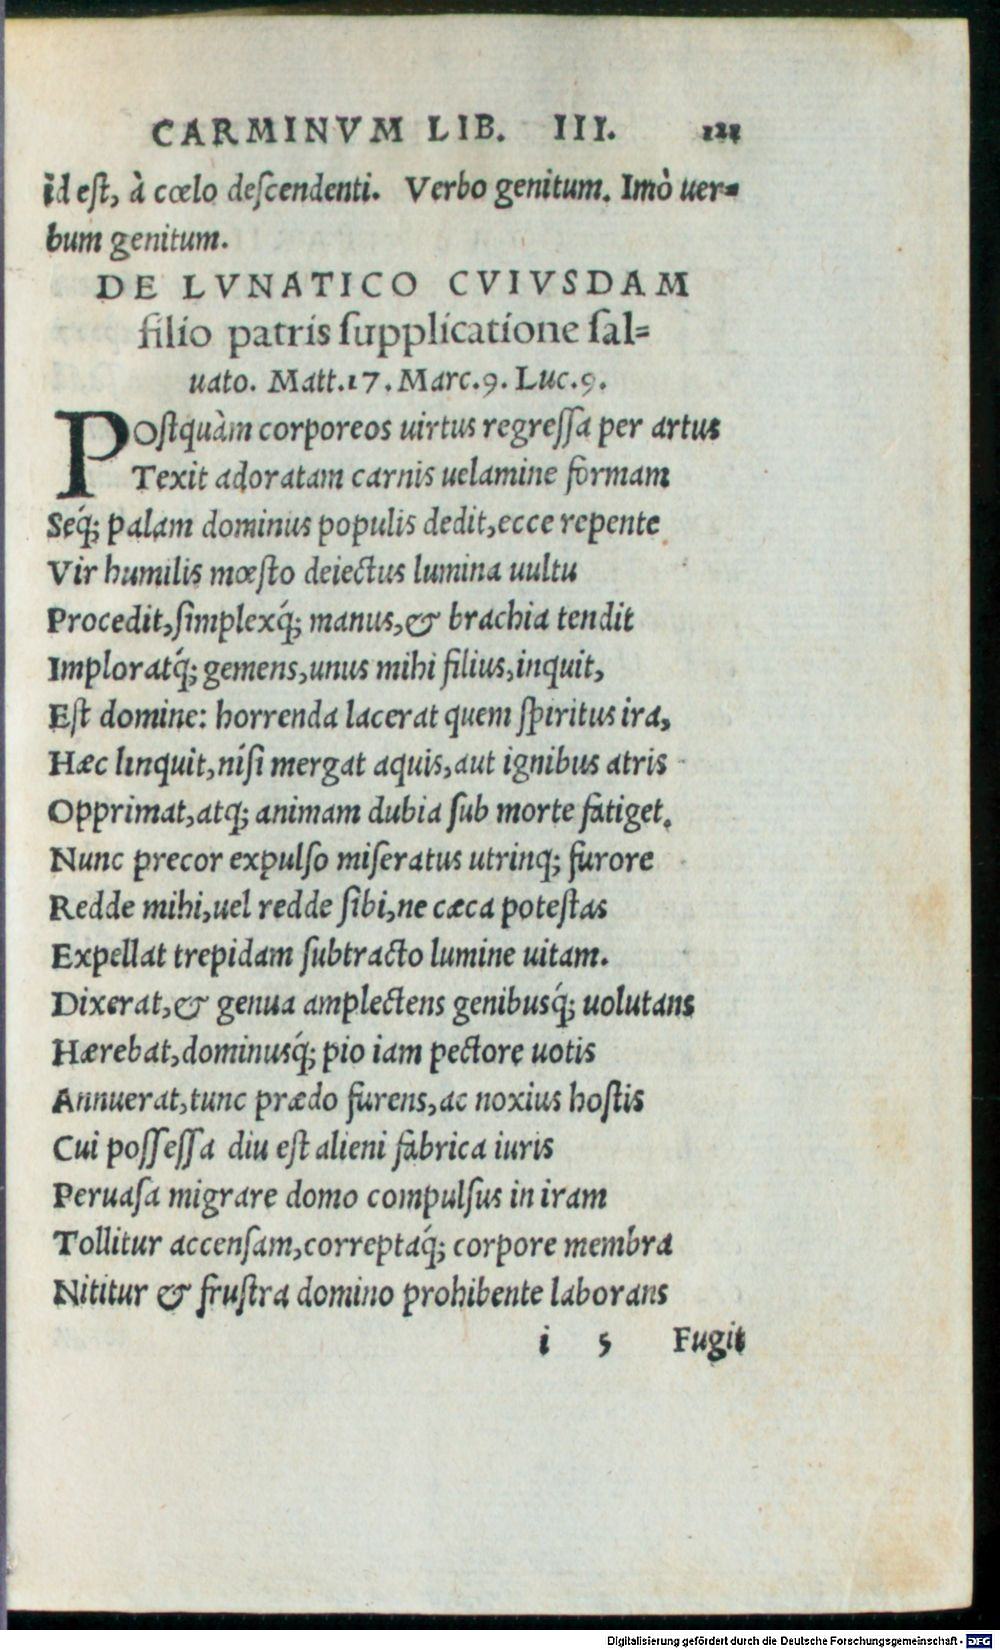 CARMINVM LIB. III.
id est, à cœlo descendenti. Verbo genitum. Imò uer=
bum genitum.
DE LVNATICO CVIVSDAM
filio patris supplicatione sal=
uato. Matt.17. Marc.9. Luc.9.
POstquàm corporeos uirtus regressa per artus
Texit adoratam carnis uelamine formam
Seq́; palam dominus populis dedit, ecce repente
Vir humilis mœsto deiectus lumina uultu
Procedit, simplexq́; manus, & brachia tendit
Imploratq́; gemens, unus mihi filius, inquit,
Est domine: horrenda lacerat quem spiritus ira,
Hæc linquit, nisi mergat aquis, aut ignibus atris
Opprimat, atq; animam dubia sub morte fatiget.
Nunc precor expulso miseratus utrinq; furore
Redde mihi, uel redde sibi, ne cæca potestas
Expellat trepidam subtracto lumine uitam.
Dixerat, & genua amplectens genibusq́; uolutans
Hærebat, dominusq́; pio iam pectore uotis
Annuerat, tunc prædo furens, ac noxius hostis
Cui possessa diu est alieni fabrica iuris
Peruasa migrare domo compulsus in iram
Tollitur accensam, correptaq́; corpore membra
Nititur & frustra domino prohibente laborans
i 5 Fugit
Digitalisierung gefördert durch die Deutsche Forschungsgemeinschaft - DFG